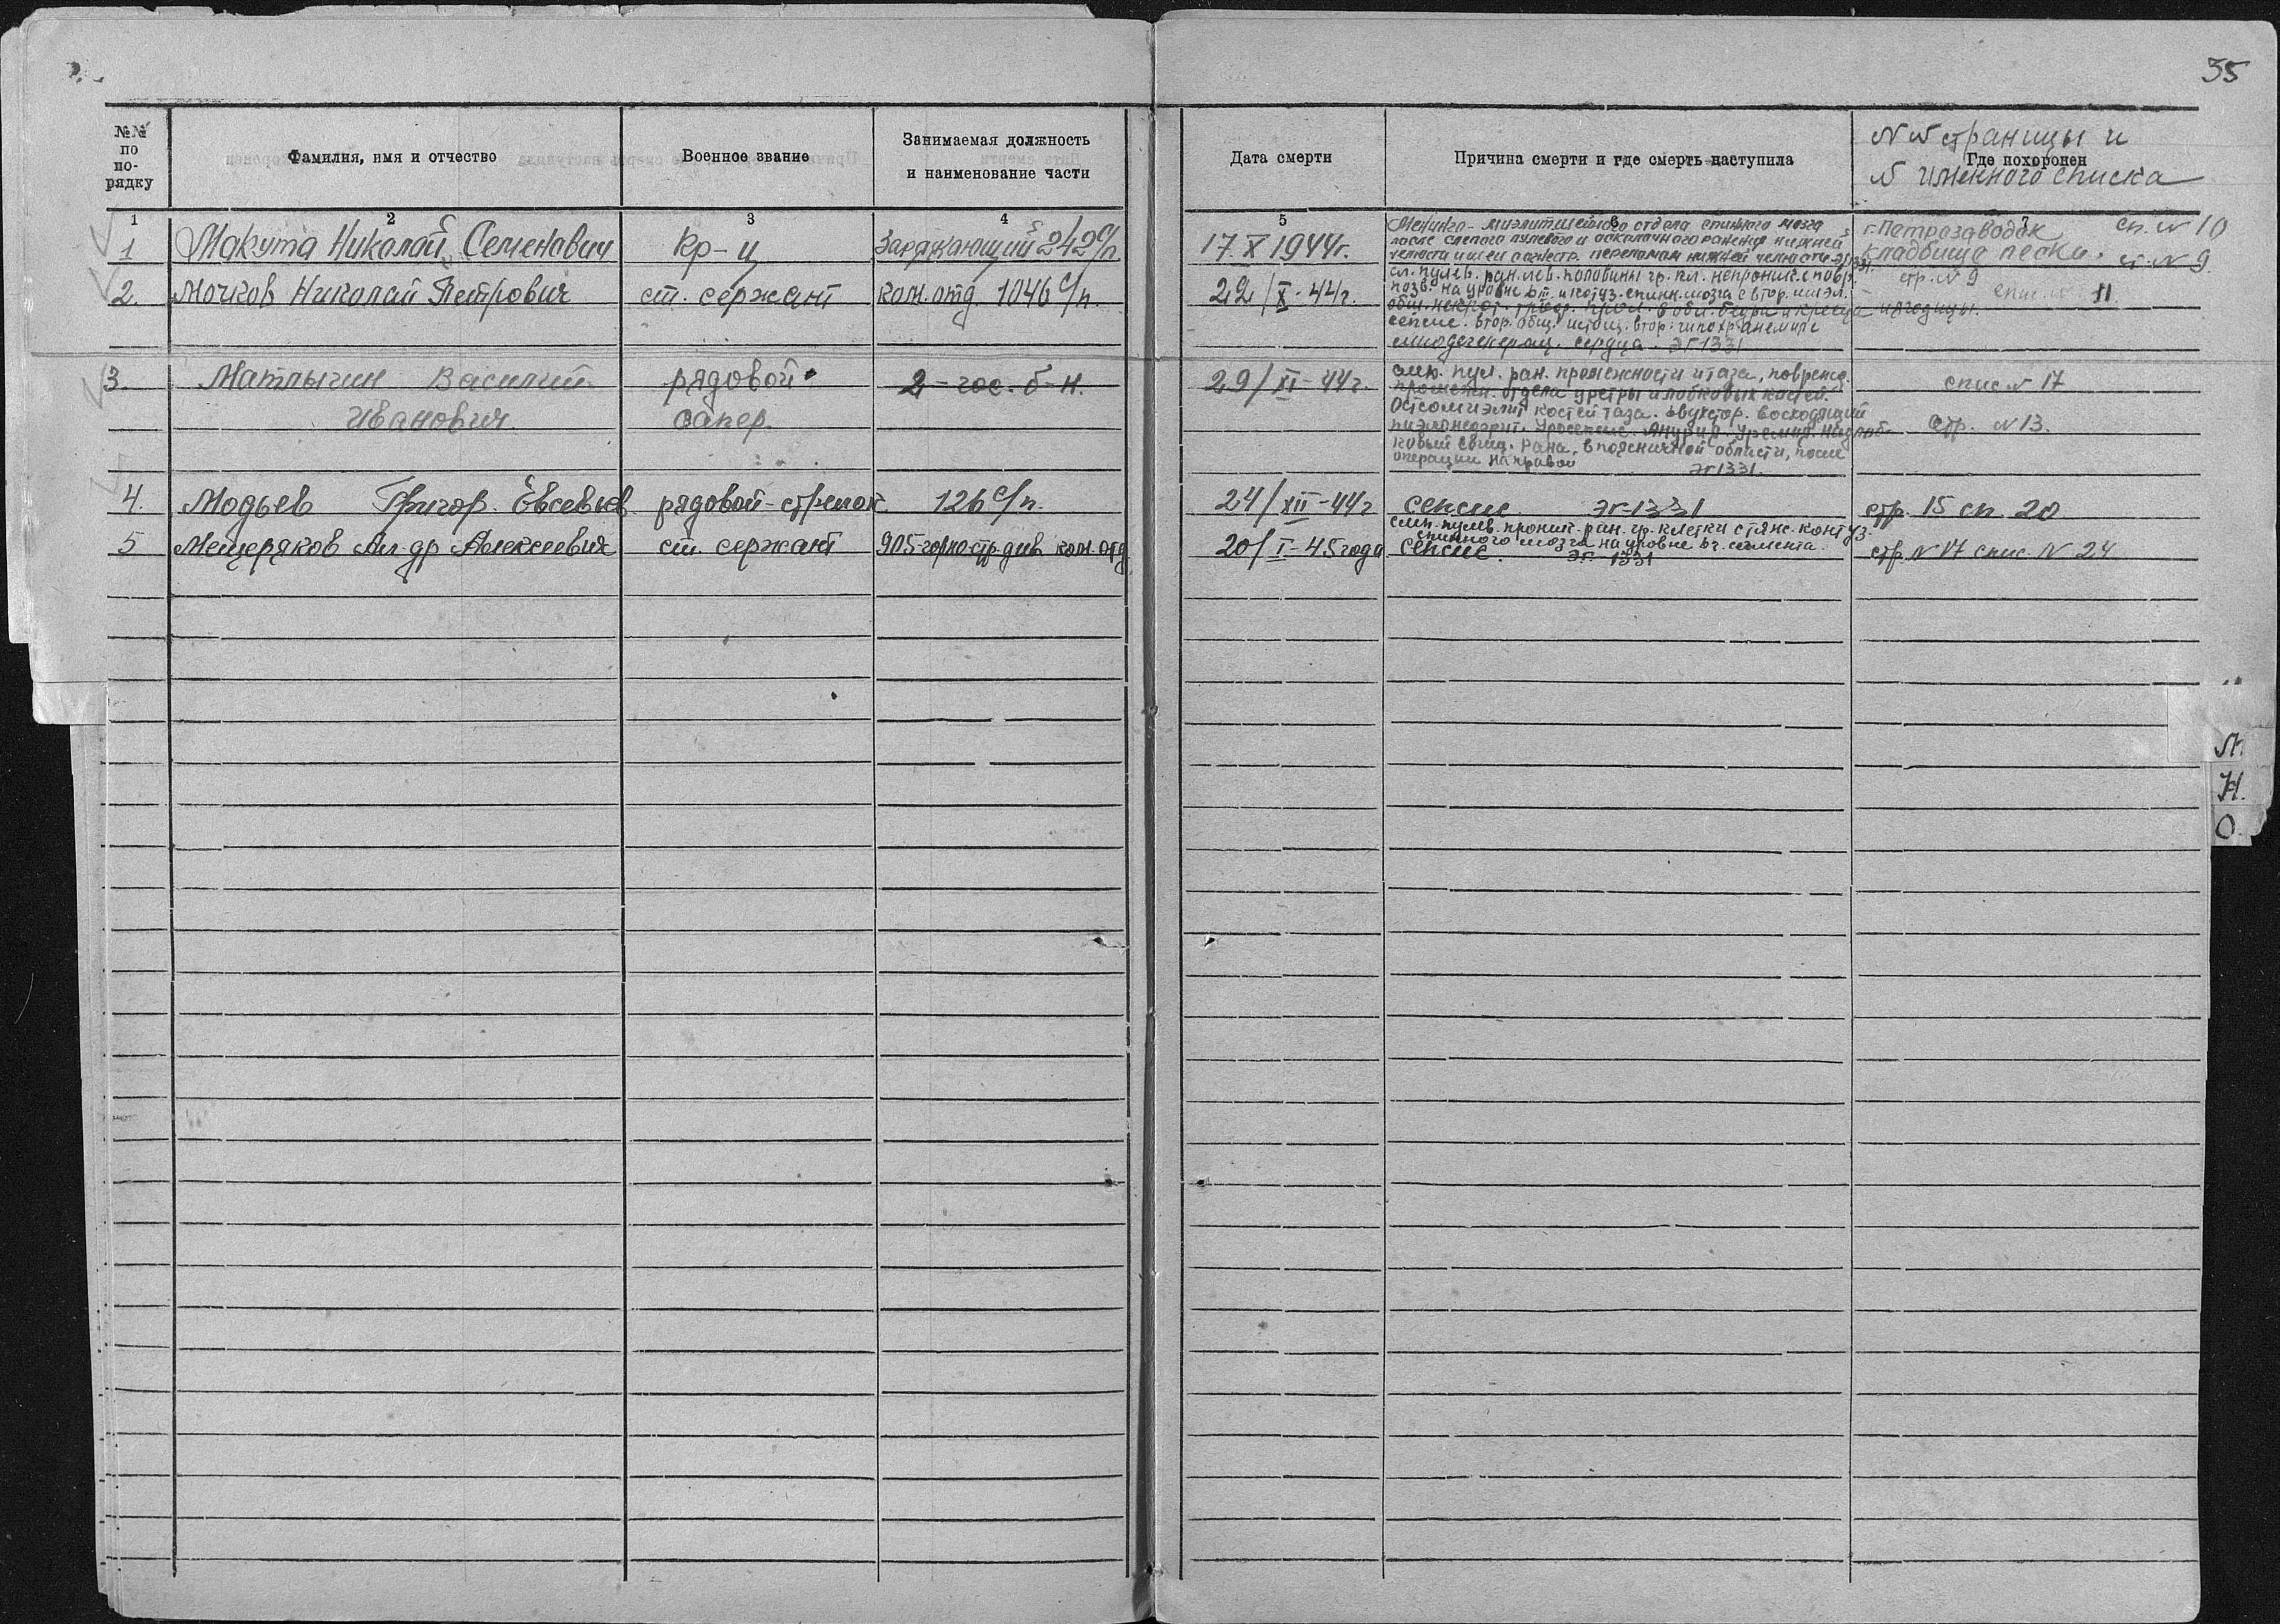 35
№№ по по-рядку
Фамилия, имя и отчество
Военное звание
Занимаемая должность
и наименование части
Дата смерти
Причина смерти и где смерть наступила
№№ страницы и
Где похоронен
№ именного списка
1 2 3 4 5 6 7
1 Макута Николай Семенович кр-ц Заряжающий 242 с/п. 17.X 1944г.
Менинго-миэлит шейного отдела спинного мозга
после слепого пулевого и осколочного ранения нижней
челюсти и шеи с огнестр. переломом нижней челюсти эг 1331.
г. Петрозаводск сп. № 10
кладбище пески. ст. № 9.
2. Мочков Николай Петрович ст. сержант ком. отд. 1046 с/п. 22/X-44г.
сл. пулев. ран. лев. половины гр. кл. непроник. с повр.
позв. на уровне и контуз. спинн. мозга с втор. миэл.
в обл. бедра и крестца и ягодицы.
сепсис. втор. общ. истощ. втор. гипохр. анемия
миодегенерац. сердца. эг 1331
стр. № 9
спис. № 11.
3. Матлыгин Василий рядовой 2-гос. б-н. 29/XI-44г.
Иванович сапер.
слеп. пул. ран. промежности и таза, поврежд.
промежн. отдела уретры и лобковых костей.
Остеомиэлит костей таза. Двухстор. восходящий
пиэлонефрит. Уросепсис. Анурия. Уремия.
свищ. рана в поясничной области, после
операции на правой эг 1331.
спис № 17
Стр. № 13.
4. Модьев Григор. Евсевьев. рядовой-стрелок 126 с/п. 24/XII-44г сепсис эг-1331 стр. 15 сп. 20
5 Мещеряков Ал-др Алексеевич ст. сержант 905-горно стр див ком. отд 20/I-45года
слеп. пулев. проник. ран. гр. клетки с тяж. контуз.
спинного мозга на уровне сегмента.
сепсис. эг 1331
стр № 17 спис. № 24
М.
Н.
О.